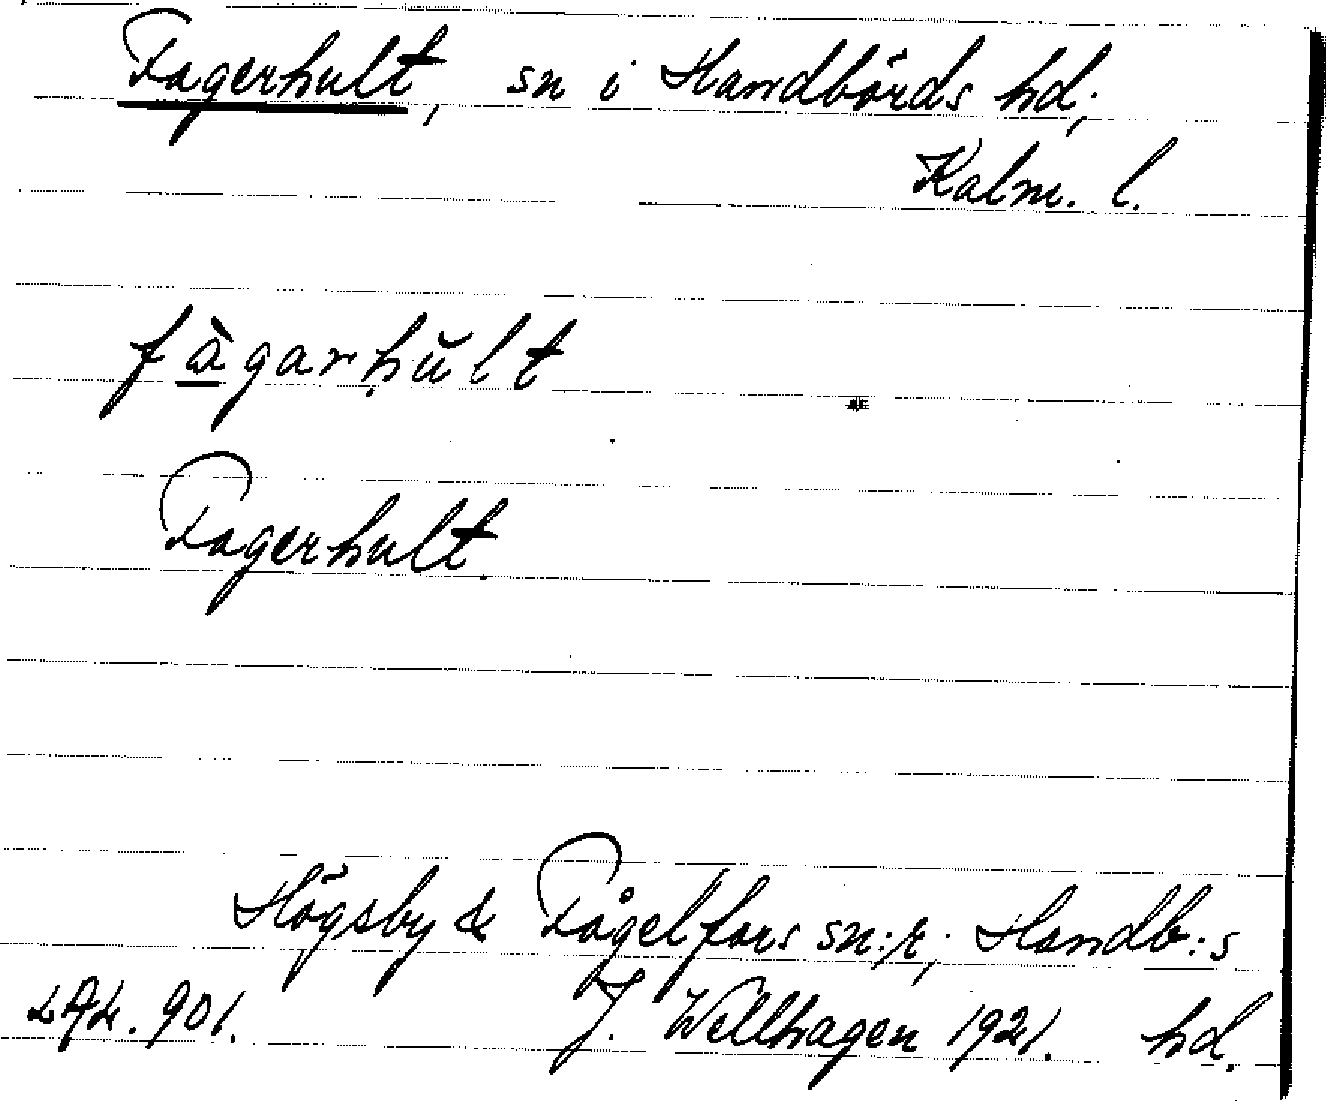 Fagerhult, sn i Handbörds hd;
Kalm. l.
fàgarhŭlt
Fagerhult.
Högsby & Fågelfors sn:r; Handb:s
901. J. Wellhagen 1921. hd.